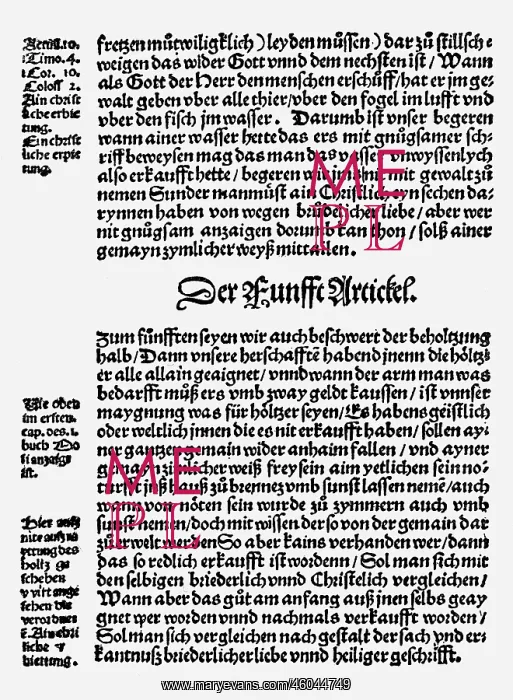 Actuũ.10.
1 Timo.4.
1 Cor. 10.
Coloss 2.
Ain christ
liche erbie
tung.
Ein christ
liche erpie
tung.
fretzen můtwiligklich) leyden můssen) dar zů stillsch⸗
weigen das wider Gott vnnd dem nechsten ist / Wann
als Gott der herr den menschen erschůff / hat er jm ge⸗
walt geben vber alle thier / vber den fogel im lufft vnd
vber den fisch jm wasser. Darumb ist vnser begeren
wann ainer wasser hette das ers mit gnůgsamer sch⸗
rifft beweysen mag das man das wasser vnwyssenlych
also erkaufft hette / begeren wir jms nit mit gewalt zů
nemen Sunder man můst ain Christlich eynsechen da⸗
rynnen haben von wegen brůderlicher liebe / aber wer
nit gnůgsam anzaigen dorumb kan thon / solß ainer
gemayn zymlicher weyß mittailen.
Der Funfft Artickel.
Zum fünfften seyen wir auch beschwert der beholtzung
halb / Dann vnsere herschafftẽ habend jnenn die höltz⸗
er alle allain geaignet / vnnd wann der arm man was
bedarfft můß ers vmb zway geldt kauffen / ist vnnser
maygnung was für höltzer seyen / Es habens geistlich
oder weltlich jnnen die es nit erkaufft haben / sollen ayi⸗
ner gantzen gemain wider anhaim fallen / vnd ayner
gemayn zimlicher weiß frey sein aim yetlichen sein no⸗
turfft jnß hauß zů brennẽ vmb sunst lassen nemẽ / auch
wann von nöten sein wurde zů zymmern auch vmb
sunst nemen / doch mit wissen der so von der gemain dar
zů erwelt werden So aber kains verhanden wer / dann
das so redlich erkaufft ist wordenn / Sol man sich mit
den selbigen briederlich vnnd Christelich vergleichen /
Wann aber das gůt am anfang auß jnen selbs geay
gnet wer worden vnnd nachmals verkaufft worden /
Sol man sich vergleichen nach gestalt der sach vnd er⸗
kantnuß briederlicher liebe vnnd heiliger geschrifft.
Wie oben
im ersten
cap. des. 1.
buch Mo
si anzaigt
ist.
Hier auß
nit auß rü
holtz ge
schehen
wirt ange
sehen die
verordnet
liche
biettung.
ME
PL
ME
PL
www.maryevans.com/46044749